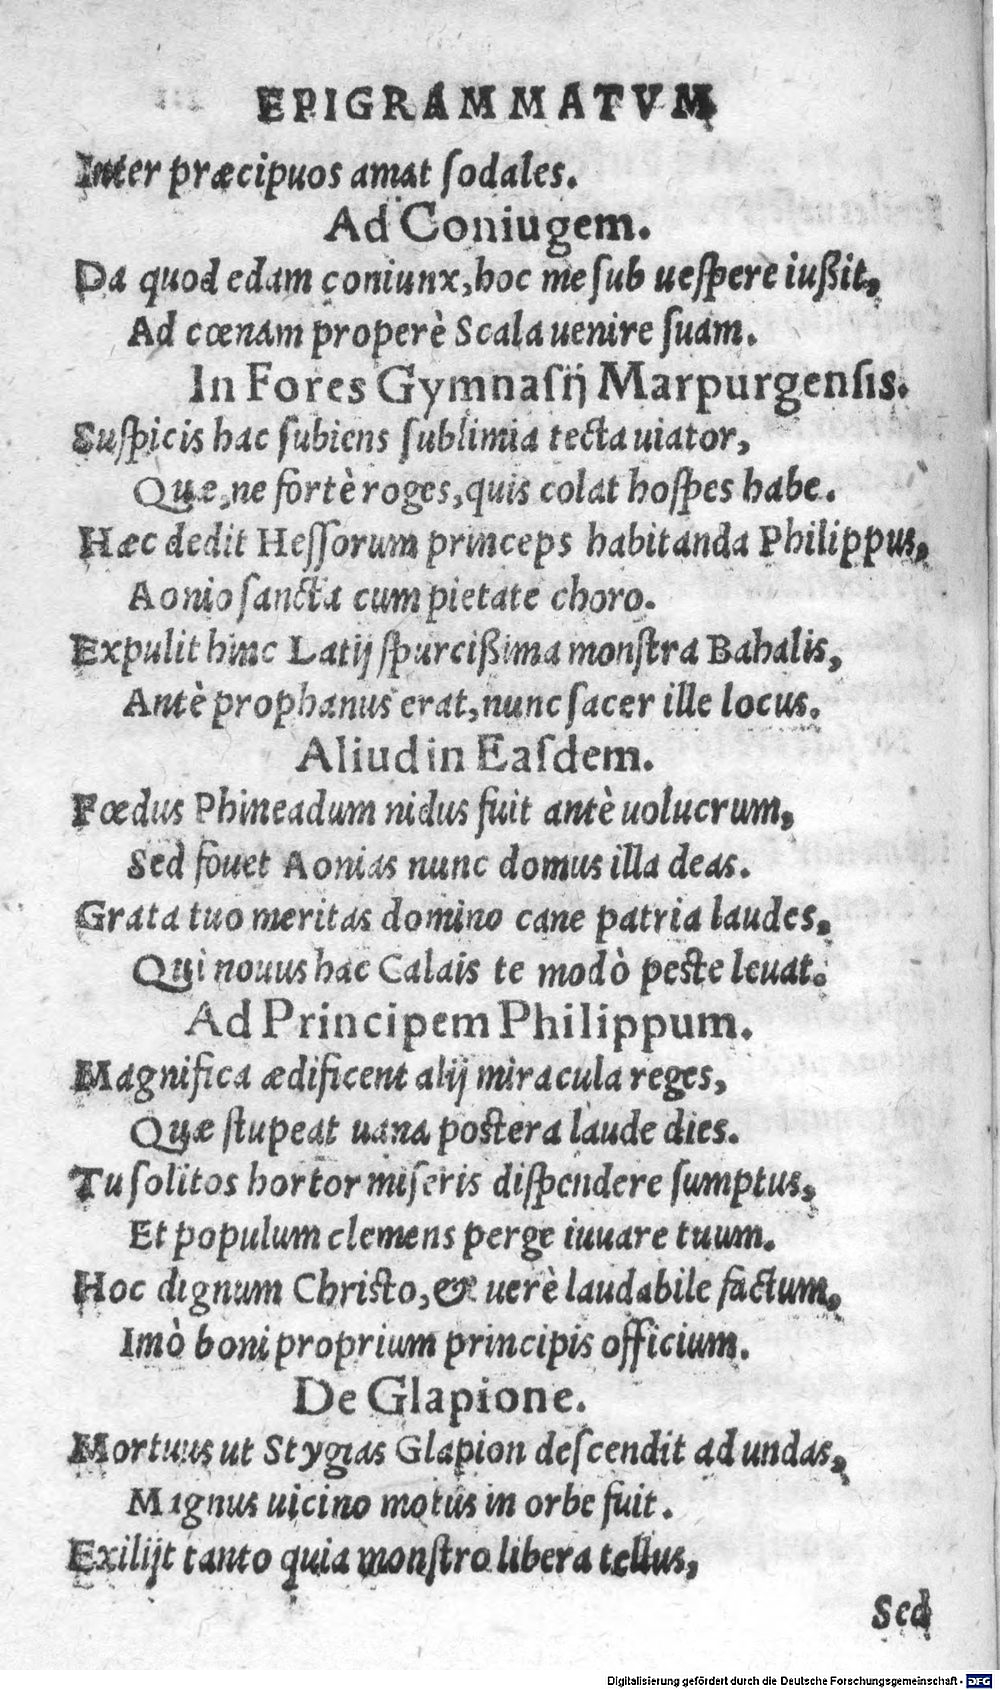 EPIGRAMMATVM
Inter præcipuos amat ſodales.
Ad Coniugem.
Da quod edam coniunx, hoc me ſub ueſpere iußit,
Ad cœnam properè Scala uenire ſuam.
In Fores Gymnaſij Marpurgenſis.
Suſpicis hac ſubiens ſublimia tecta uiator,
Quæ, ne fortè roges, quis colat hoſpes habe.
Hæc dedit Heſſorum princeps habitanda Philippus,
Aonio ſancta cum pietate choro.
Expulit hinc Latij ſpurcißima monſtra Bahalis,
Antè prophanus erat, nunc ſacer ille locus.
Aliud in Eaſdem.
Fœdus Phineadum nidus fuit antè uolucrum,
Sed fouet Aonias nunc domus illa deas.
Grata tuo meritas domino cane patria laudes,
Qui nouus hac Calais te modò peste leuat.
Ad Principem Philippum.
Magnifica ædificent alij miracula reges,
Quæ ſtupeat uana postera laude dies.
Tu ſolitos hortor miſeris diſpendere ſumptus,
Et populum clemens perge iuuare tuum.
Hoc dignum Christo, & uerè laudabile factum,
Imò boni proprium principis officium.
De Glapione.
Mortuus ut Stygias Glapion deſcendit ad undas,
Magnus uicino motus in orbe fuit.
Exilijt tanto quia monſtro libera tellus,
Sed
Digitalisierung gefördert durch die Deutsche Forschungsgemeinschaft - DFG